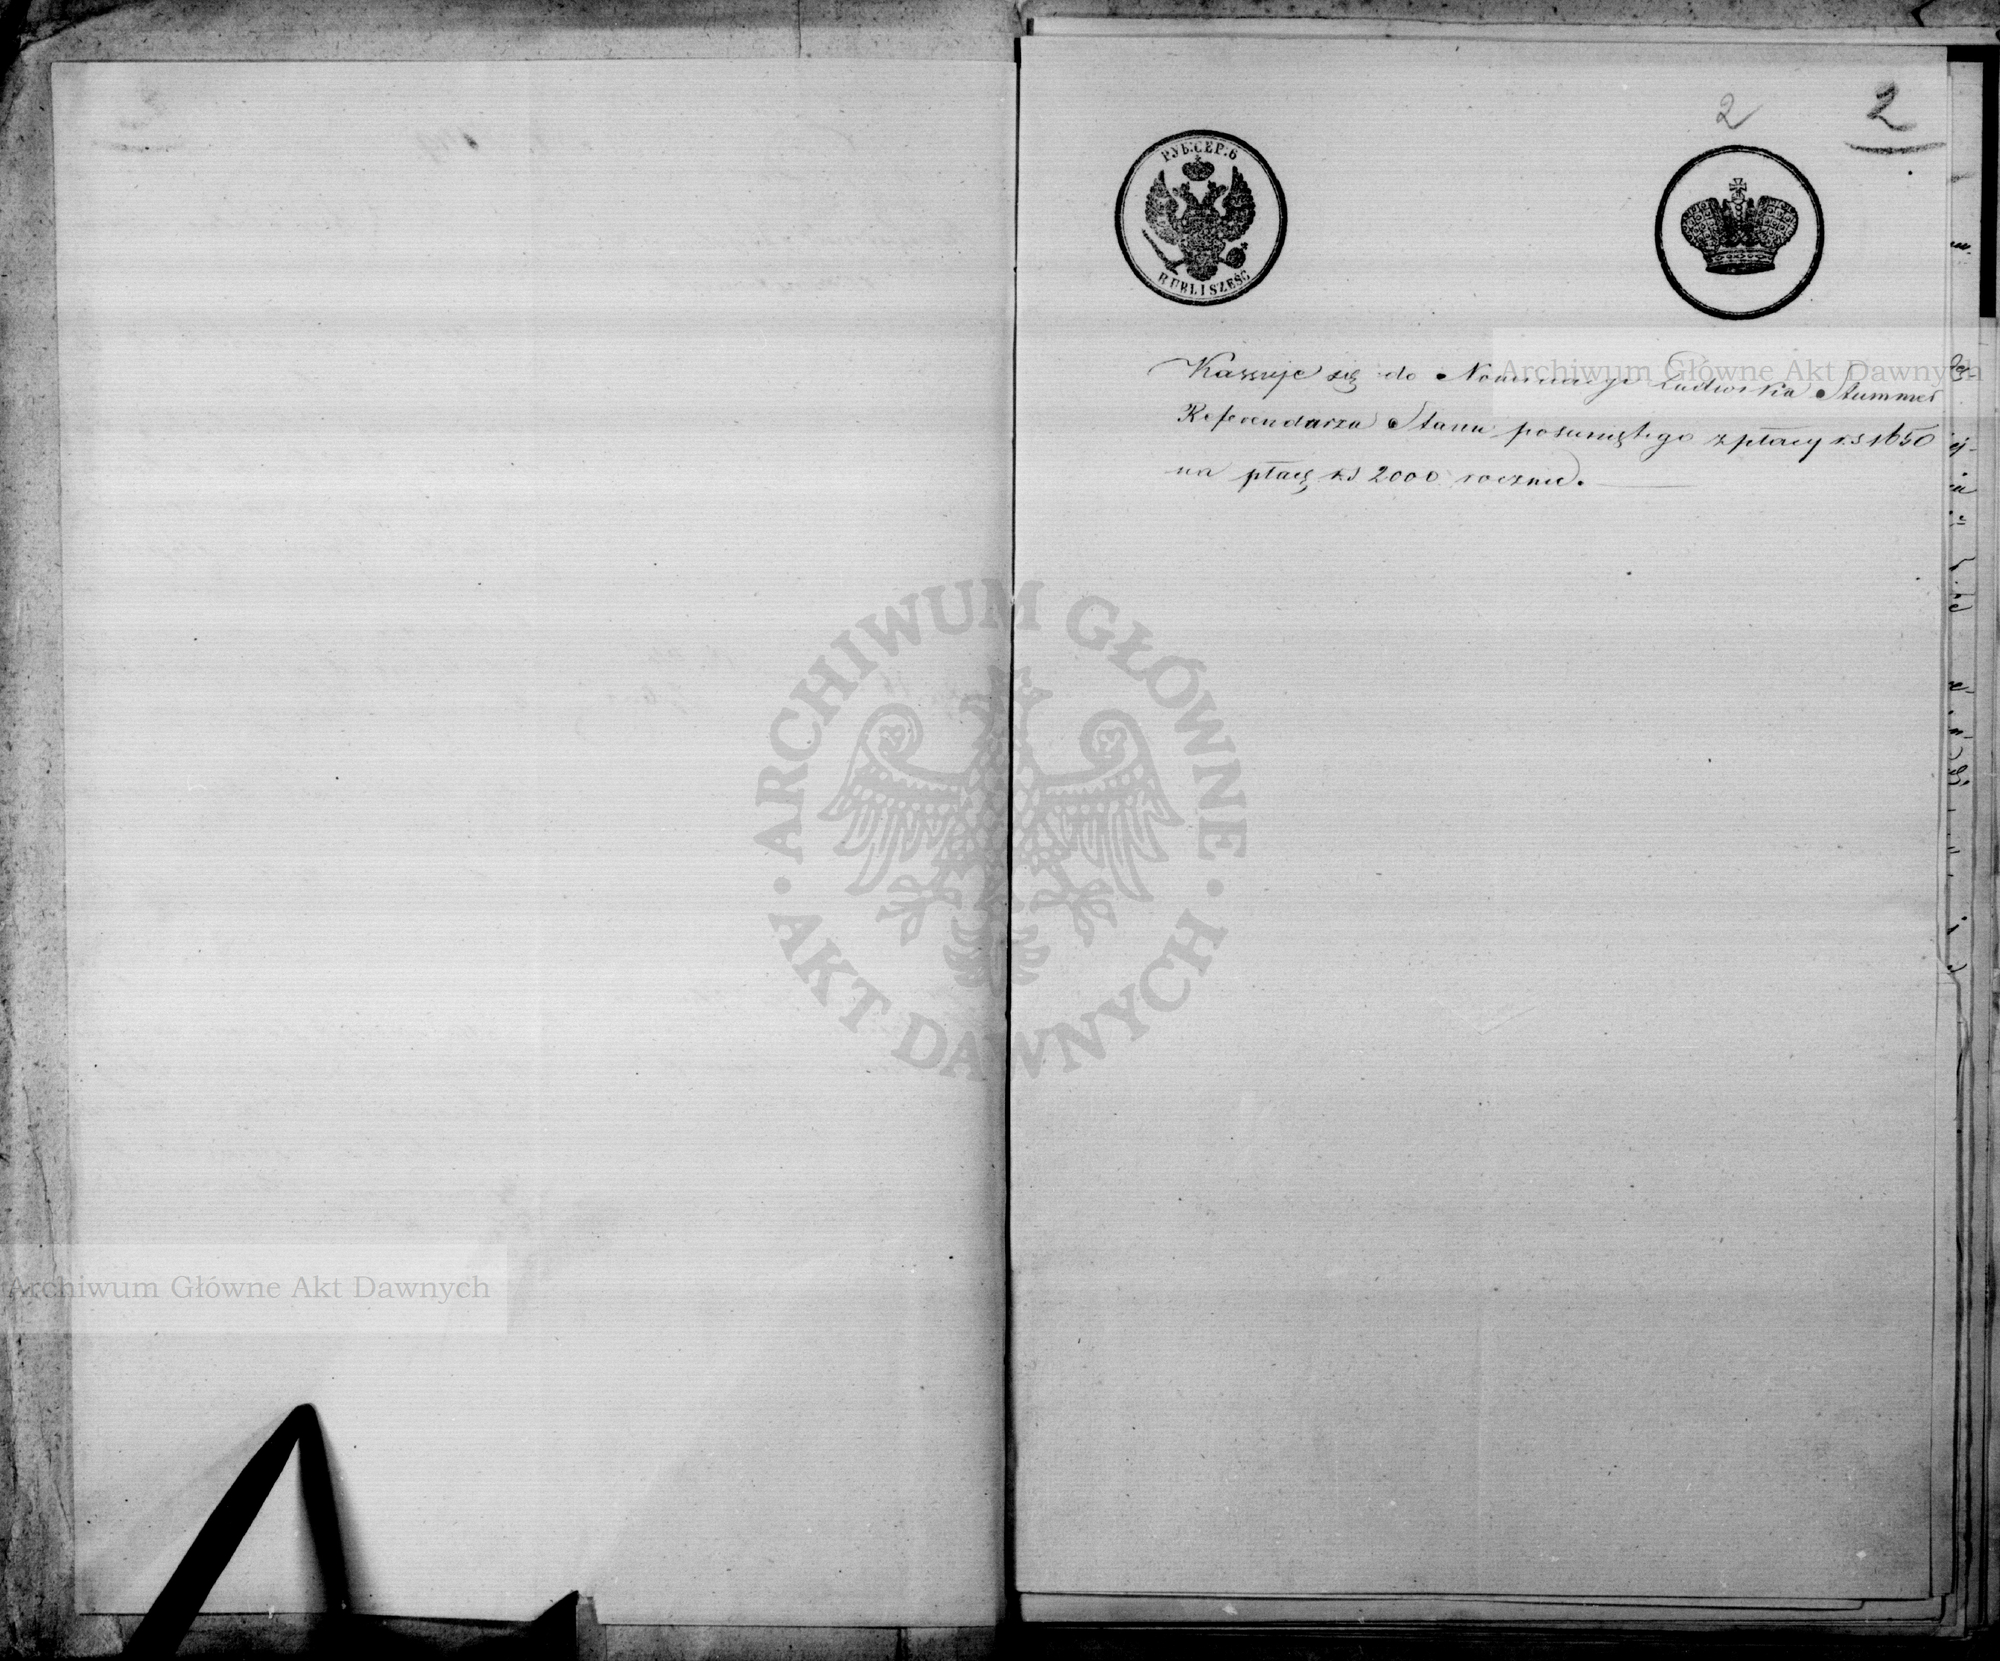 2
2
РУБ:СЕР:6
RUBLI SZEŚĆ
Kassuje się do Nominacyi Ludwika Stummer
Referendarza Stanu posuniętego z płacy rs 1650
na płacę rs 2000 rocznie.
Archiwum Główne Akt Dawnych
ARCHIWUM GŁÓWNE
AKT DAWNYCH
Archiwum Główne Akt Dawnych